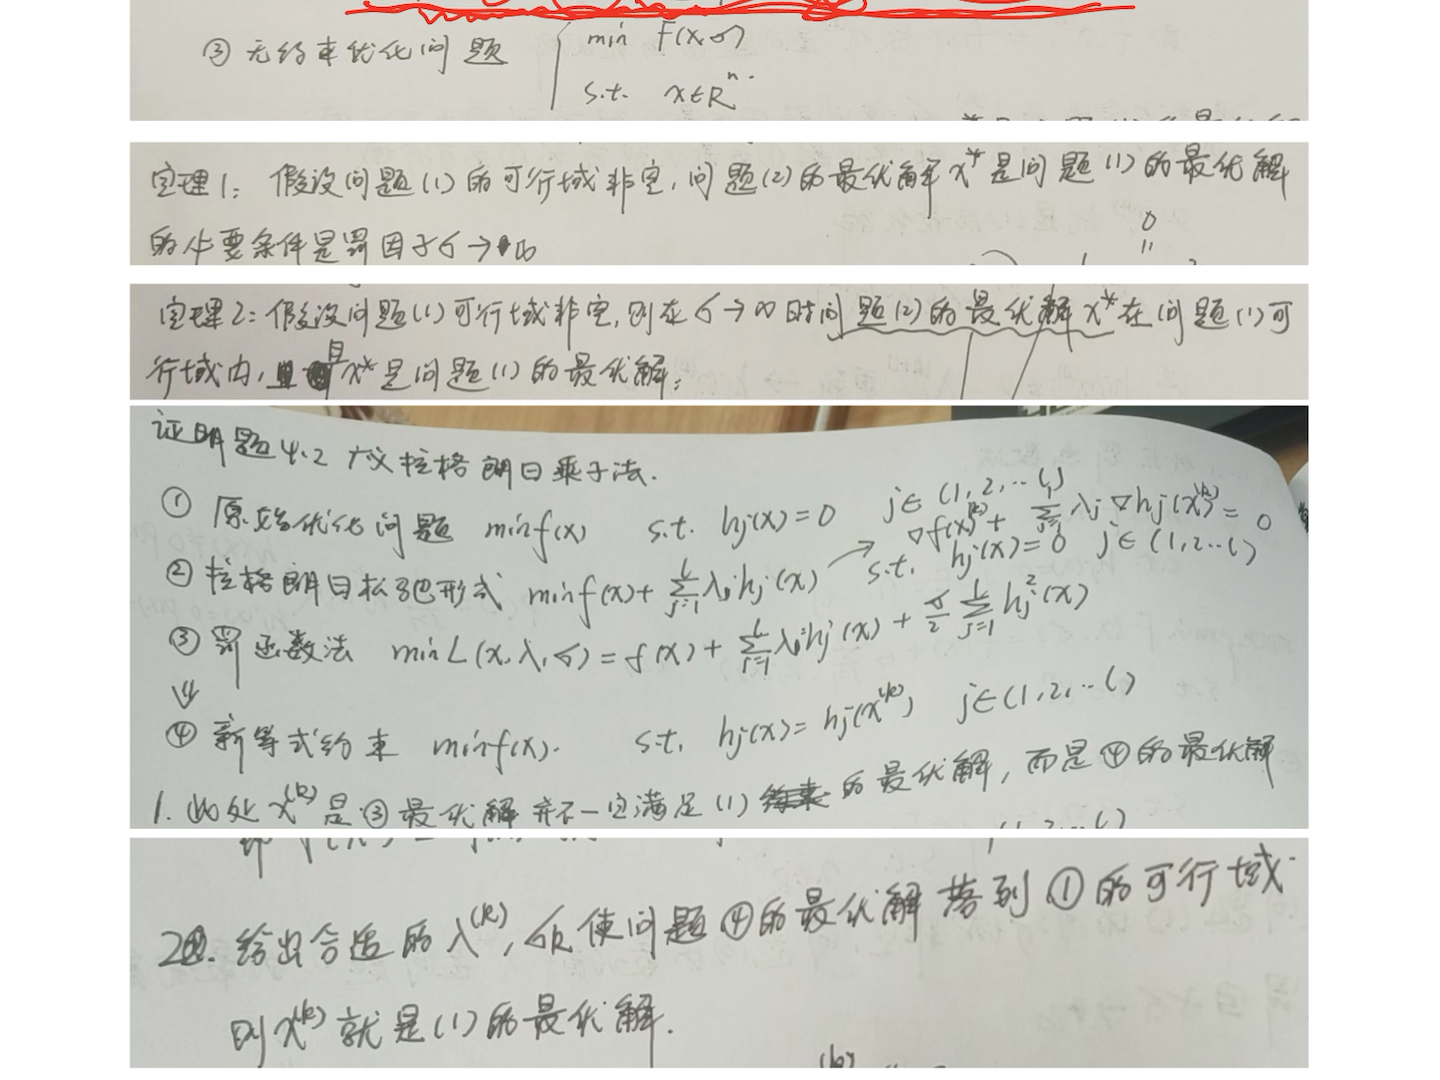 ③ 无约束优化问题 { min F(x,σ)
s.t. x∈Rⁿ.
定理1: 假设问题(1)的可行域非空,问题(2)的最优解x*是问题(1)的最优解
0
的必要条件是罚因子σ→∞
定理2: 假设问题(1)可行域非空,则在σ→∞时问题(2)的最优解x*在问题(1)可
行域内,且x*是问题(1)的最优解;
证明题4.2 广义拉格朗日乘子法.
① 原始优化问题 minf(x) s.t. hj(x)=0 j∈(1,2,…l)
∇f(x^(k))+ Σ_{j=1}^l λj∇hj(x^(k))=0
② 拉格朗日松弛形式 minf(x)+Σ_{j=1}^l λjhj(x) → s.t. hj(x)=0 j∈(1,2…l)
③ 罚函数法 minL(x,λ,σ)=f(x)+Σ_{j=1}^l λjhj(x)+σ/2 Σ_{j=1}^l hj²(x)
⇓
④ 新等式约束 minf(x). s.t. hj(x)=hj(x^(k)) j∈(1,2,…l)
1. 此处x^(k)是③最优解并不一定满足(1)的最优解,而是④的最优解
2. 给出合适的λ^(k),σk使问题④的最优解落到①的可行域.
则x^(k)就是(1)的最优解.